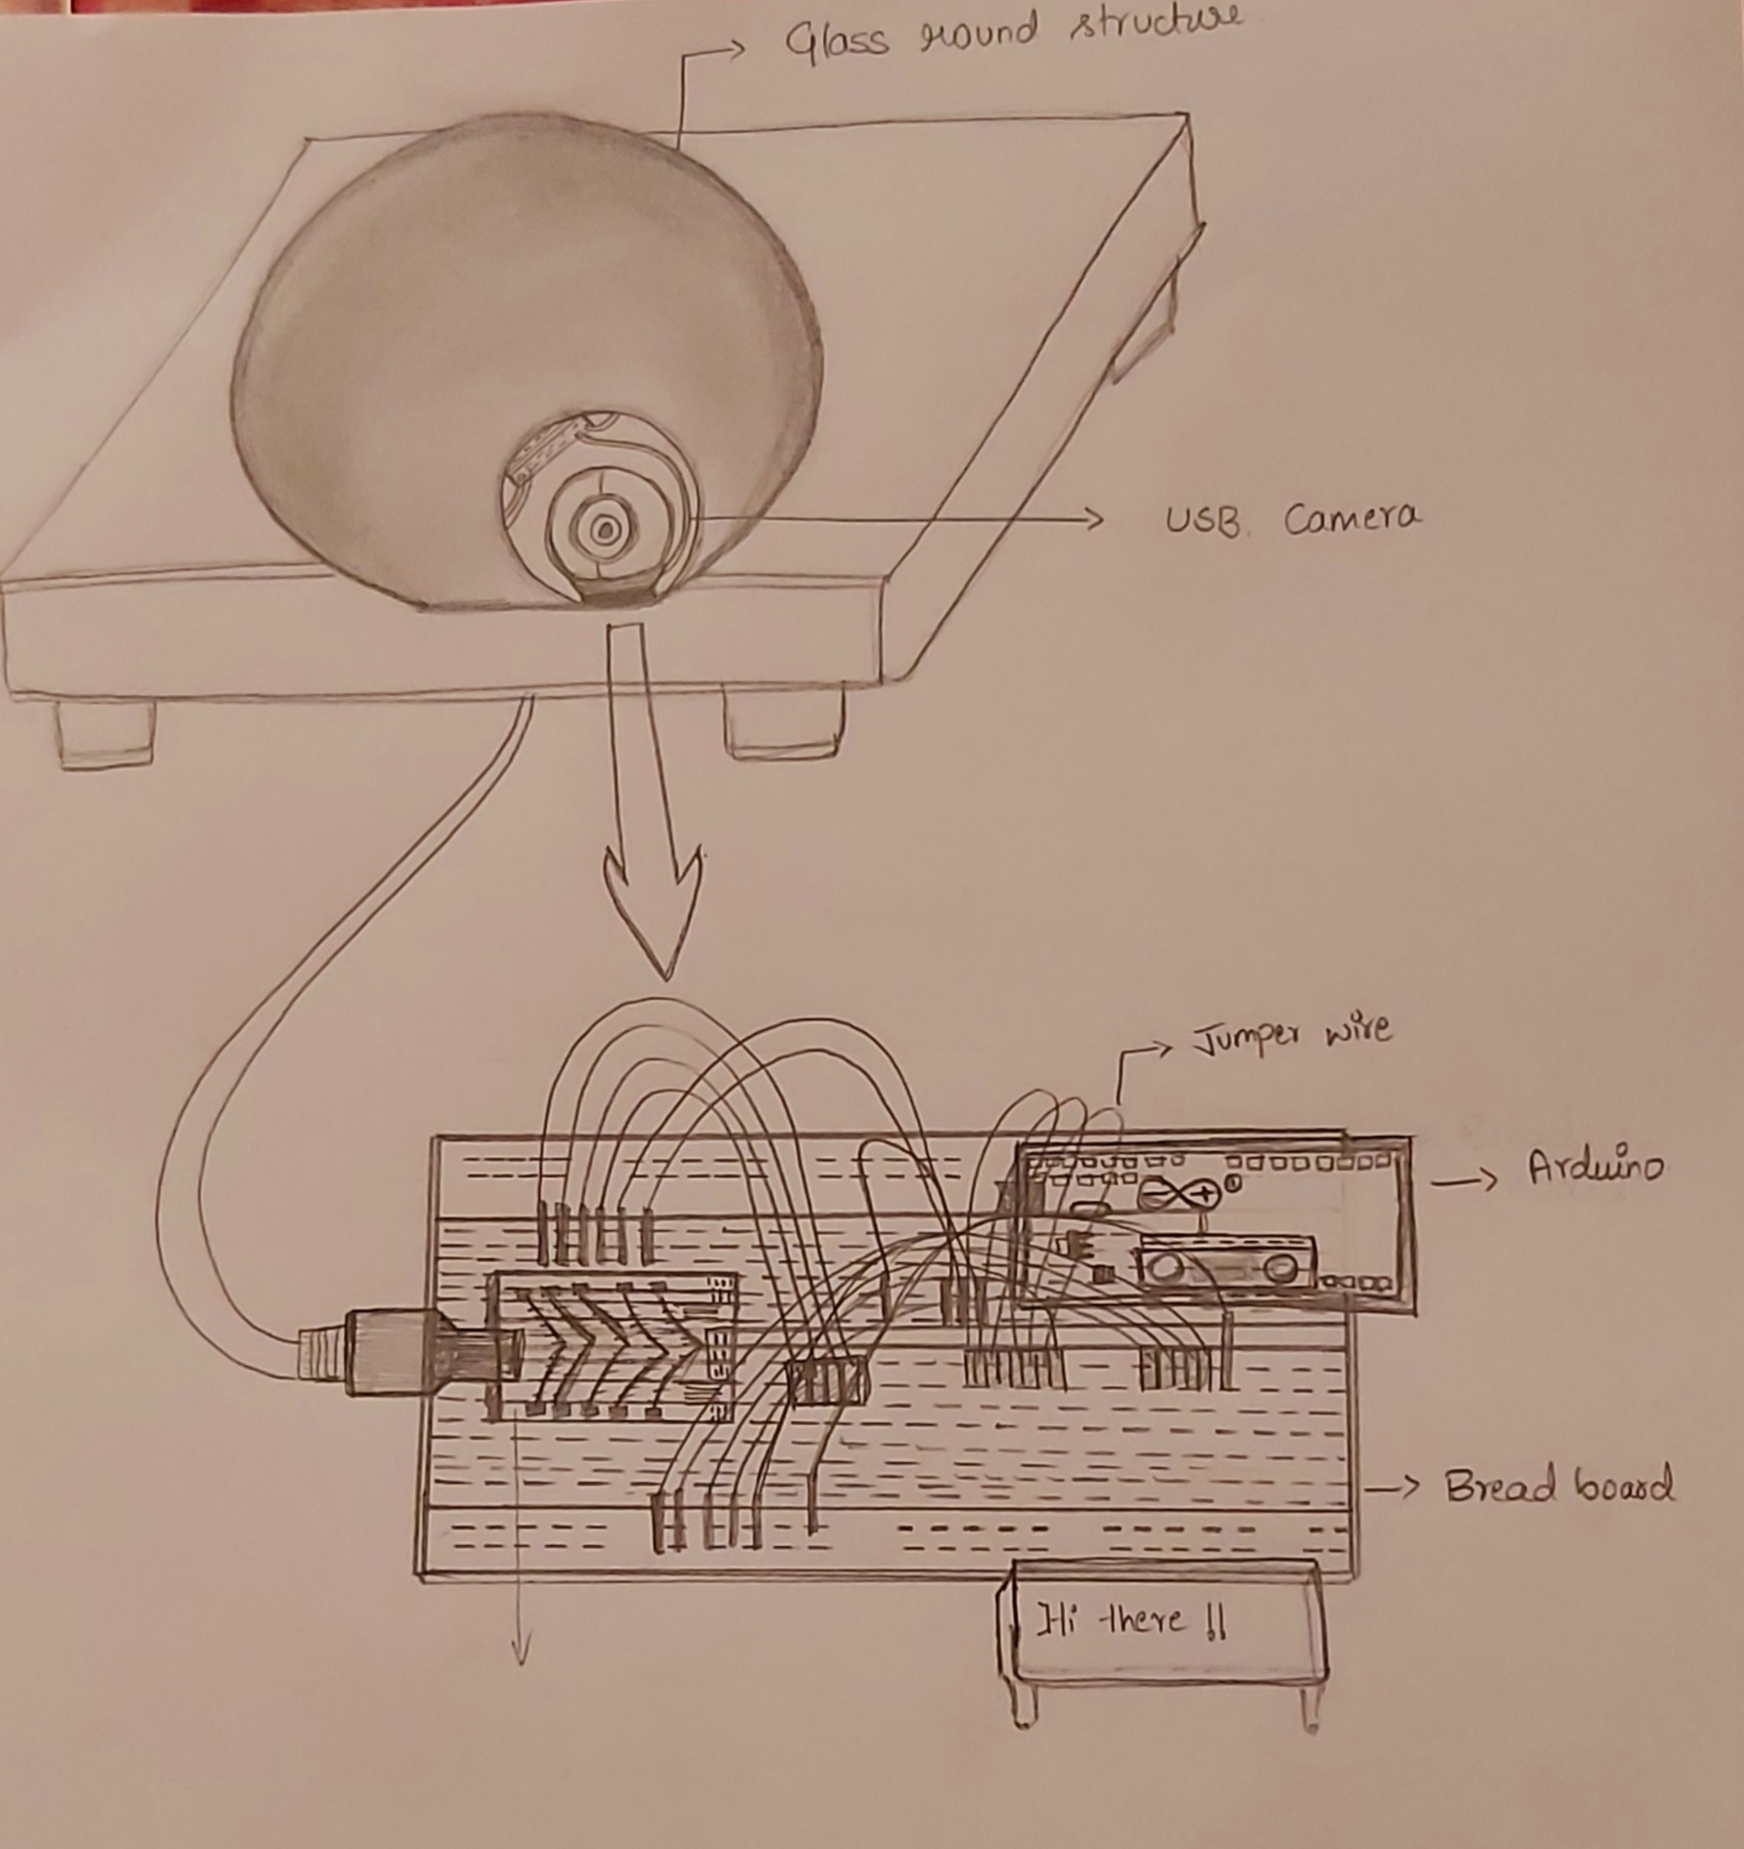 Glass round structure
USB. Camera
Jumper wire
Arduino
Bread board
Hi there !!